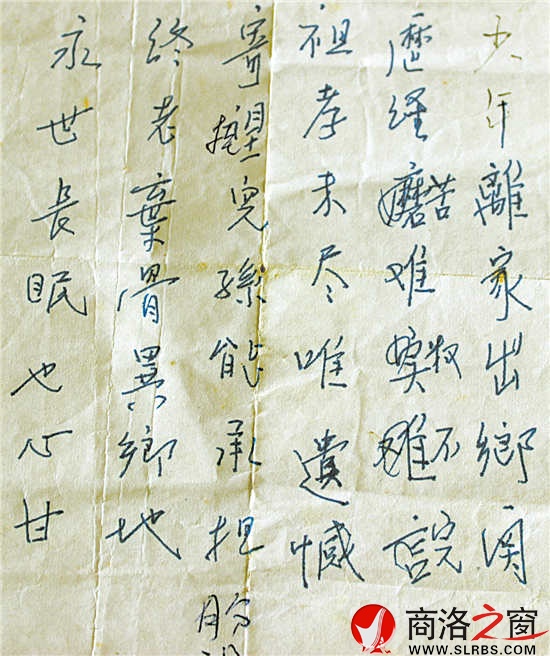 少年離家出鄉関
歷経磨苦难难不說
祖孝未尽唯遺憾
寄望兒孫能承担
终老棄骨異鄉地
永世長眠也心甘
商洛之窗
WWW.SLRBS.COM